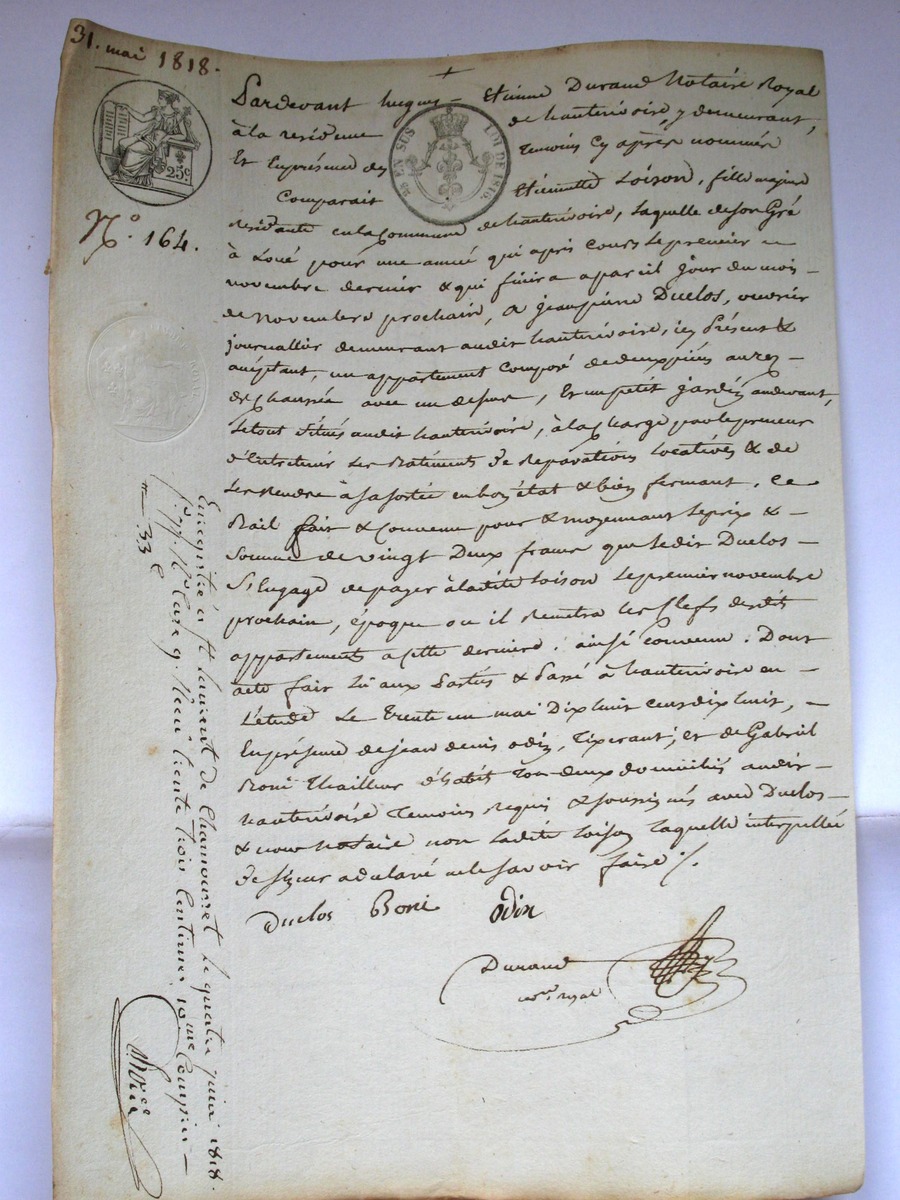 31. mai 1818.
25c.
EN SUS
LOI DE 1816.
N.° 164.
Pardevant hugues – Etienne Durand Notaire Royal
à la residence de hauterivoire, y demeurant,
Et En présence des temoins Cy après nommés
Comparait Etiennette Loison, fille majeure
residante en la Commune de hauterivoire, laquelle de son Gré
à Loué pour une année qui a pris cours le premier
novembre dernier & qui finira a pareil jour du mois –
de Novembre prochain, a jean pierre Duclos, ouvrier
journallier demeurant audit hauterivoire, icy Présent &
acceptant, un appartement Composé de deux pièces au rez –
de chaussée avec un dessus, Et un petit jardin audevant,
Le tout Situés audit hauterivoire, à la Charge par le preneur
d'Entretenir les Batiments de Reparations locatives & de
les Rendre à sa sortie en bon état & bien fermant. Ce
Bail fait & Convenu pour & moyennant le prix &
Somme de vingt Deux francs que ledit Duclos –
S'Engage de payer à ladite Loison le premier novembre
prochain, époque ou il Remettra les Clefs desdits
appartements a Cette derniere. ainsi convenu. Dont
acte fait Lû aux Parties & Passé à hauterivoire en –
L'étude Le Trente un mai Dix huit cent dix huit, –
En présence de jean denis odin, Tixerant; et de Gabriel
Boni Thailleur d'habits Tous deux domiciliés audit –
hauterivoire Temoins Requis & soussignés avec Duclos –
& nous Notaire non Ladite Loison Laquelle interpellée
de Signer a declaré ne le savoir faire ./.
Duclos Boni Odin
Durand
not.re royal
Enregistré à St Laurent de Chamousset le quatre juin 1818.
Reçu trente trois centimes 10.me Compris –
33 c